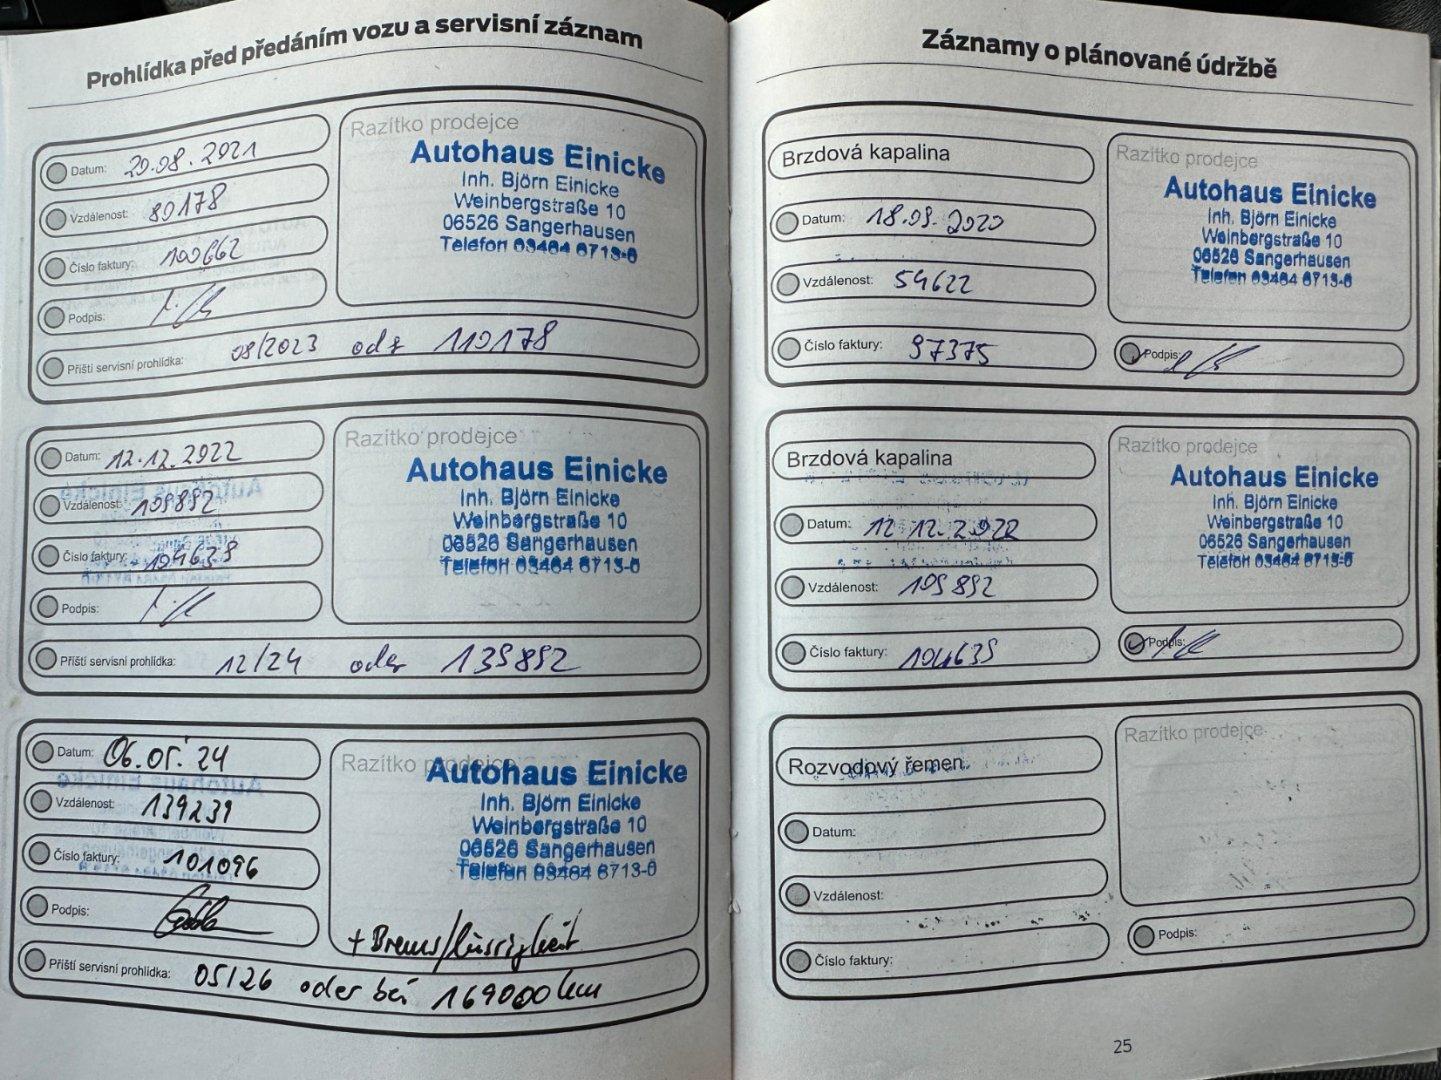 Prohlídka před předáním vozu a servisní záznam
Datum: 20.08.2021
Vzdálenost: 80178
Číslo faktury: 100662
Podpis:
Příští servisní prohlídka: 08/2023 oder 110178
Razítko prodejce
Autohaus Einicke
Inh. Björn Einicke
Weinbergstraße 10
06526 Sangerhausen
Telefon 03464 6713-0
Datum: 12.12.2022
Vzdálenost: 109892
Číslo faktury: 104639
Podpis:
Příští servisní prohlídka: 12/24 oder 139892
Razítko prodejce
Autohaus Einicke
Inh. Björn Einicke
Weinbergstraße 10
06526 Sangerhausen
Telefon 03464 6713-0
Datum: 06.05.'24
Vzdálenost: 139239
Číslo faktury: 101096
Podpis:
Příští servisní prohlídka: 05/26 oder bei 169000 km
Razítko prodejce
Autohaus Einicke
Inh. Björn Einicke
Weinbergstraße 10
06526 Sangerhausen
Telefon 03464 6713-0
+ Bremsflüssigkeit
Záznamy o plánované údržbě
Brzdová kapalina
Datum: 18.09.2020
Vzdálenost: 54622
Číslo faktury: 97375
Razítko prodejce
Autohaus Einicke
Inh. Björn Einicke
Weinbergstraße 10
06526 Sangerhausen
Telefon 03464 6713-0
Podpis:
Brzdová kapalina
Datum: 12.12.2022
Vzdálenost: 109892
Číslo faktury: 104639
Razítko prodejce
Autohaus Einicke
Inh. Björn Einicke
Weinbergstraße 10
06526 Sangerhausen
Telefon 03464 6713-0
Podpis:
Rozvodový řemen
Datum:
Vzdálenost:
Číslo faktury:
Razítko prodejce
Podpis:
25